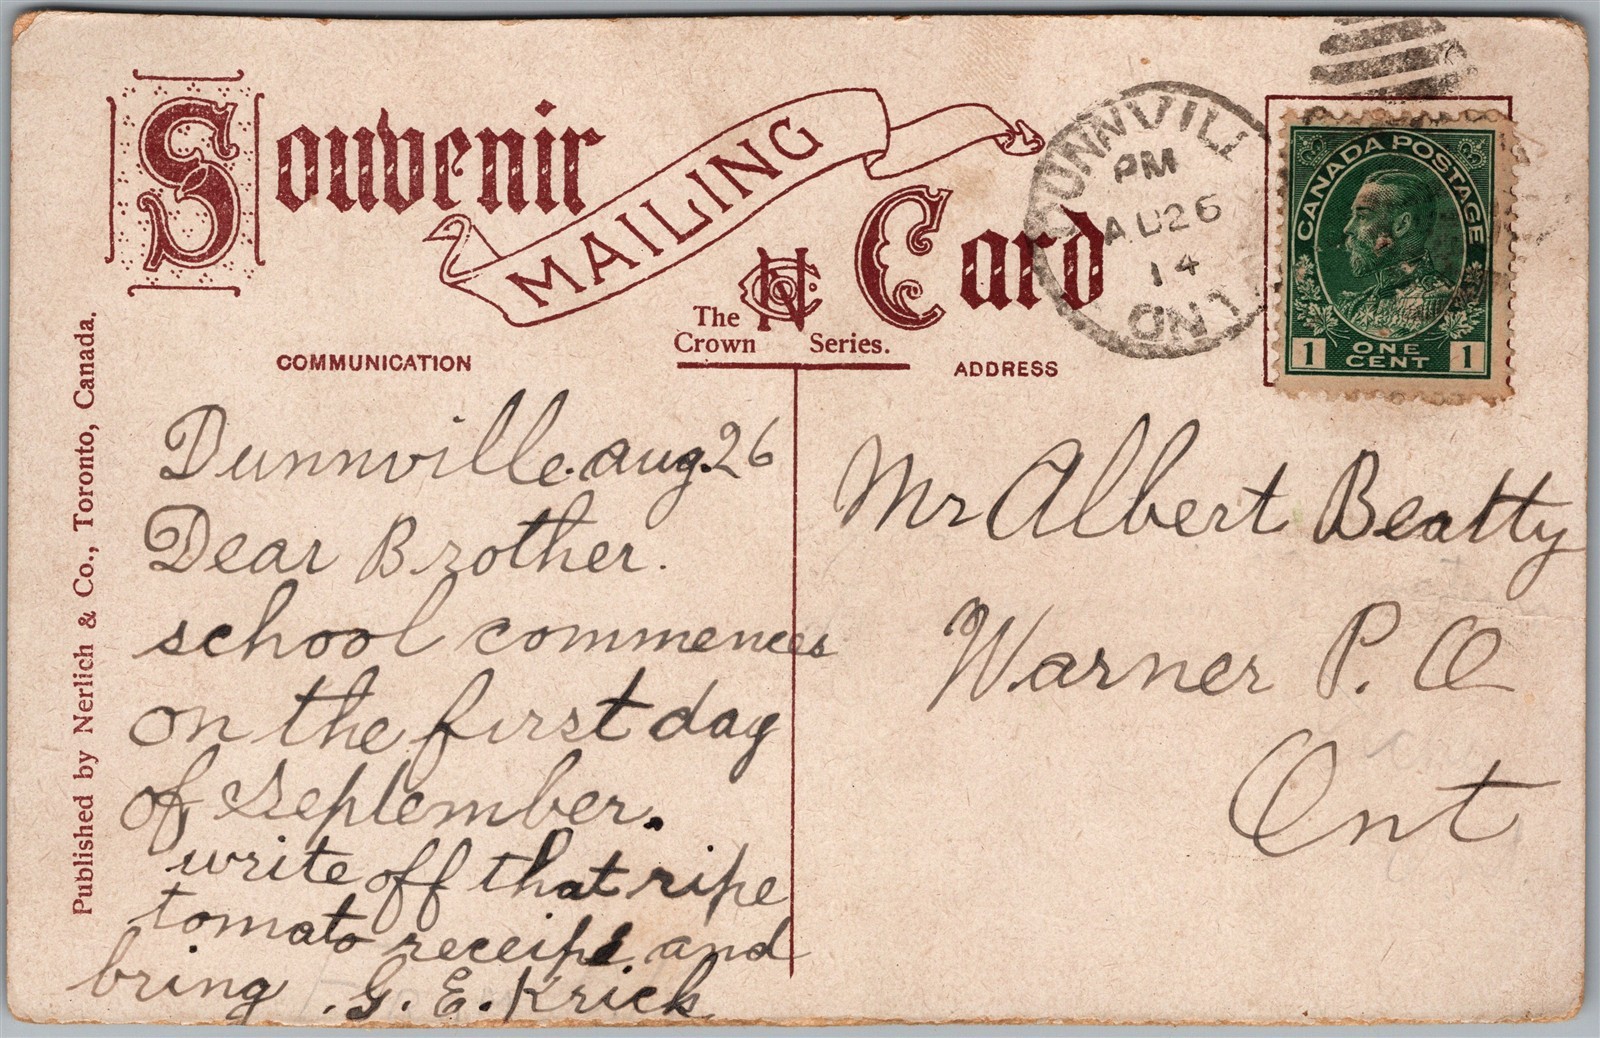 Souvenir
MAILING
Card
The
Crown Series.
COMMUNICATION
ADDRESS
Published by Nerlich & Co., Toronto, Canada.
DUNNVILL
PM
AU 26
14
ONT
CANADA POSTAGE
1 ONE CENT 1
Dunnville. Aug. 26
Dear Brother.
school commences
on the first day
of September.
write off that ripe
tomato receipe and
bring . G. E. Krick
Mr Albert Beatty
Warner P. O
Ont